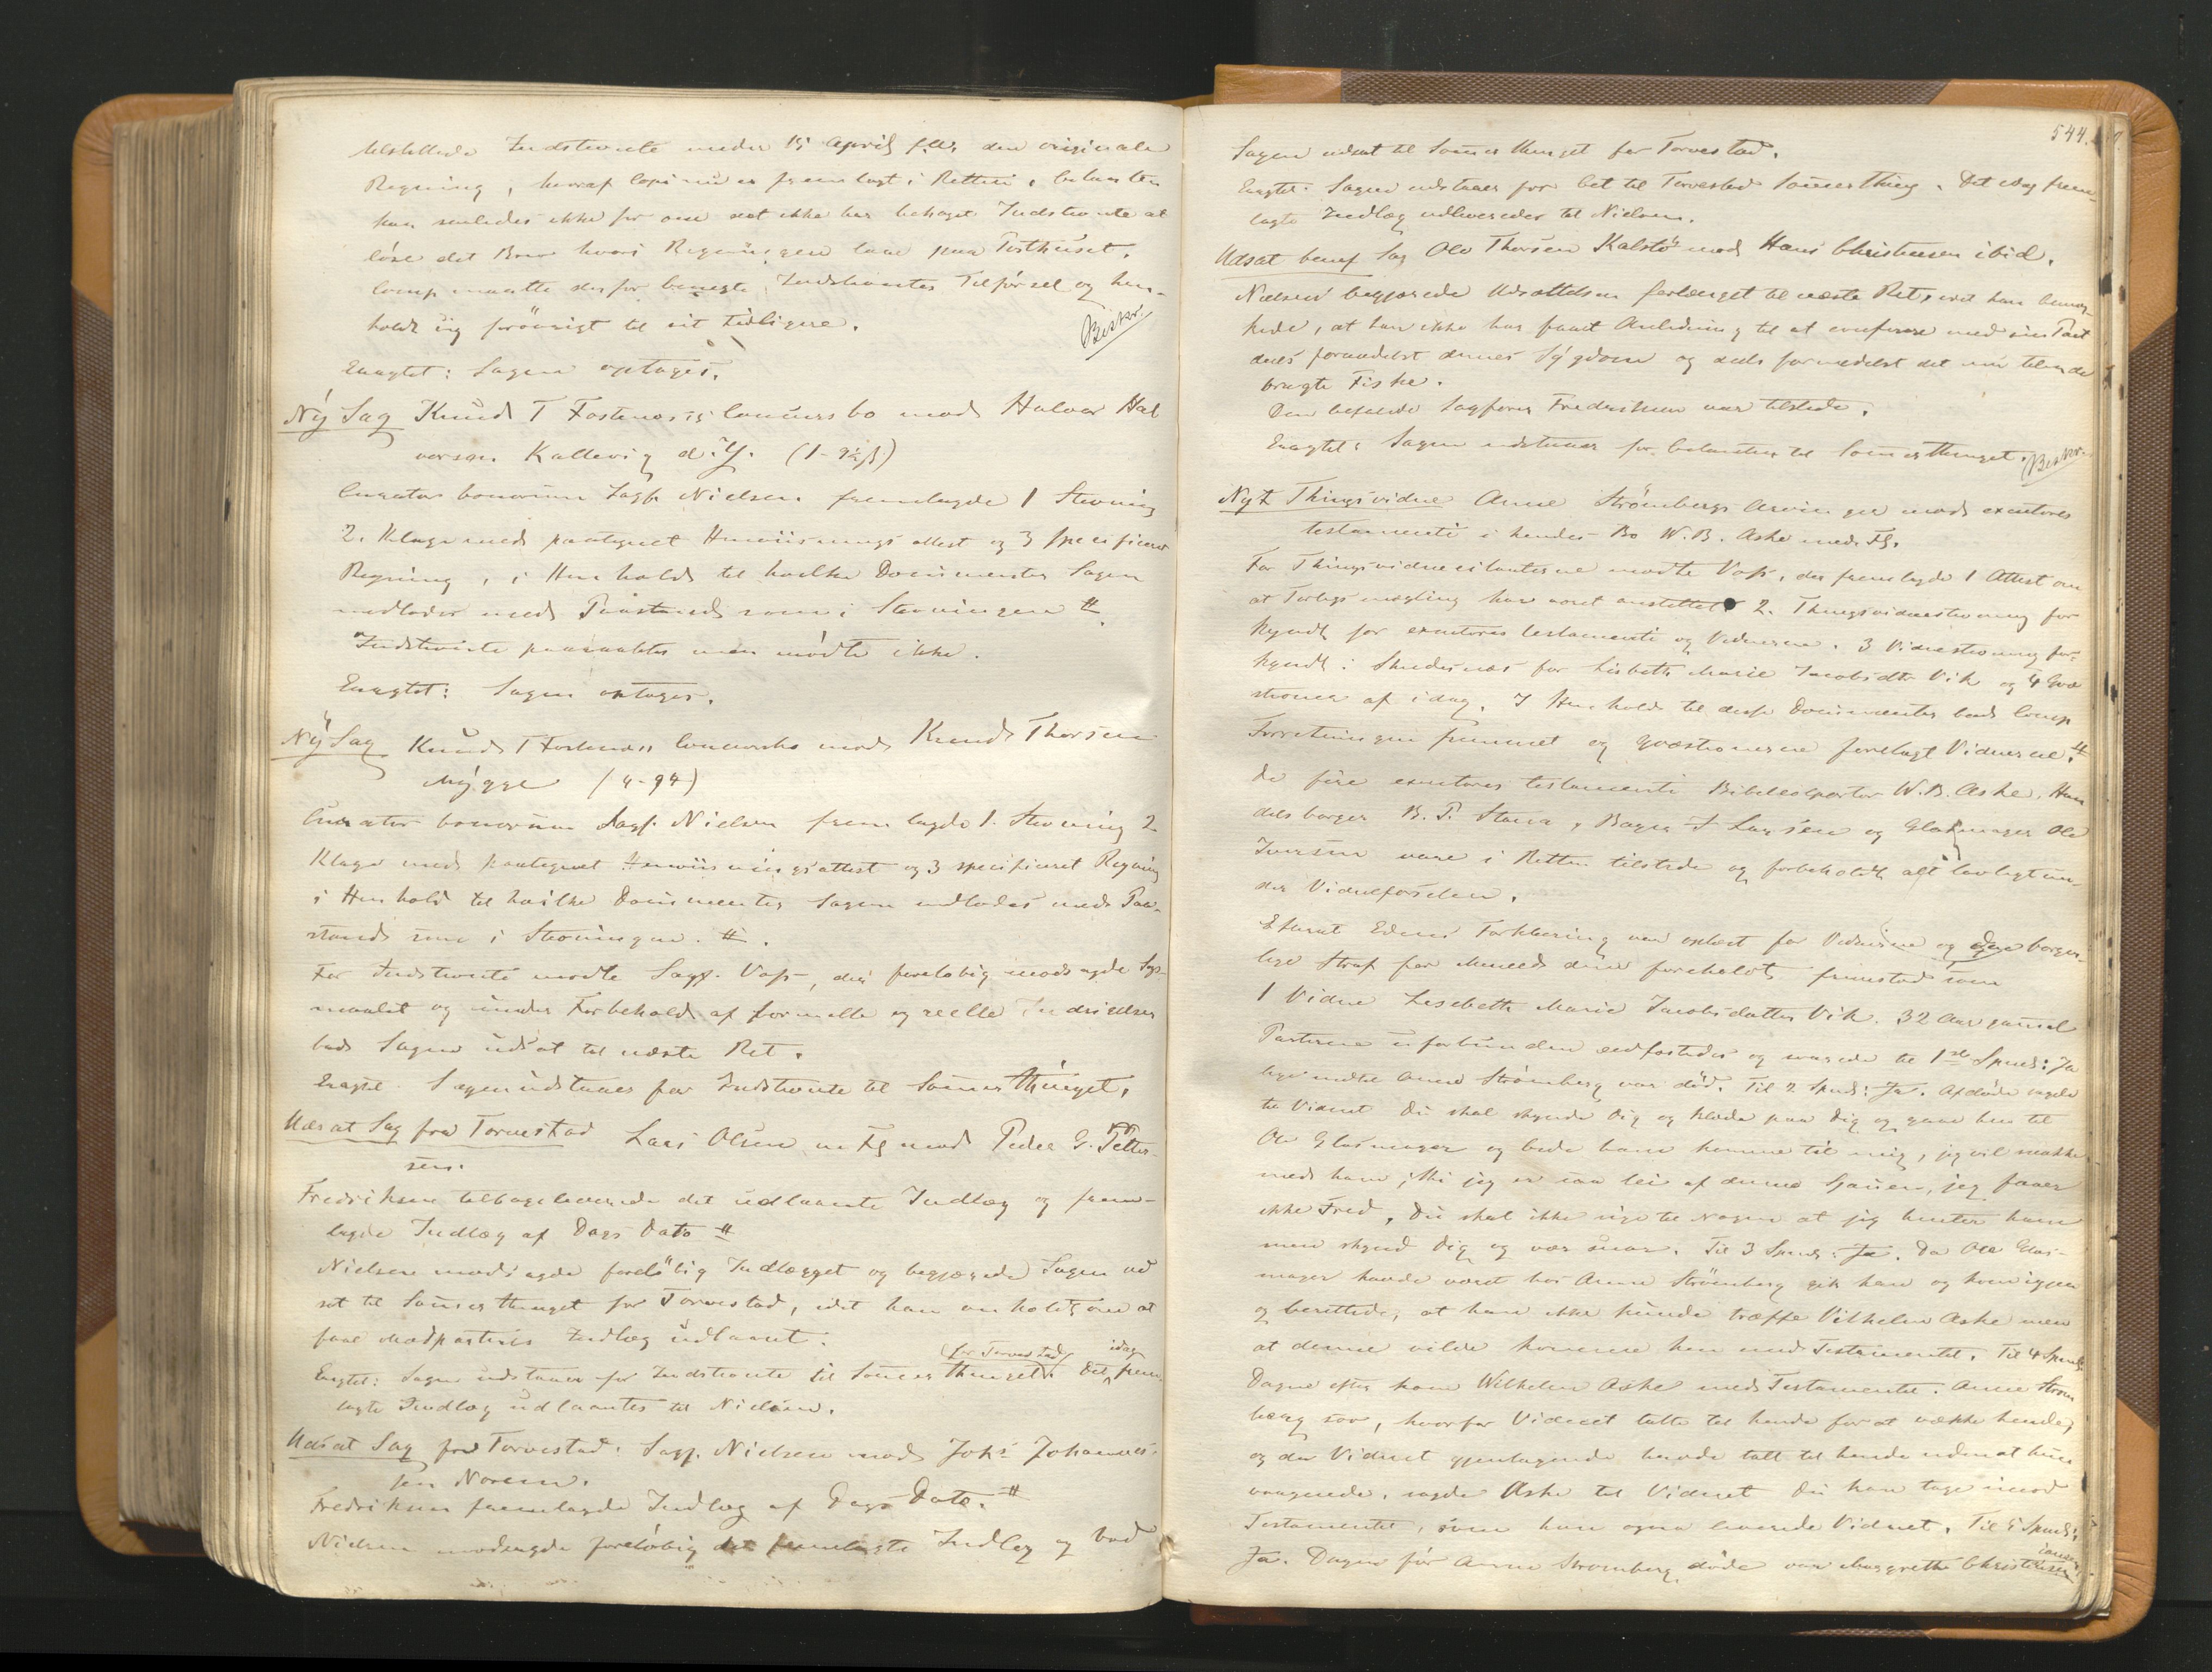 tilstillede Indstevnte under 15 April f.A. den originale
Regning, hvoraf Copi nu er fremlagt i Retten, betalen
kan saaledes ikke for om det ikke har behaget Indstevnte at
löse det Brev hvori Regningen laae paa Posthuset.
Comp maatte derfor benegte Indstevntes Tilförsel og hen-
holdt sig forövrigt til sit tidligere.
Beskr.
Eragtet: Sagen optages.
Ny Sag Knud T Fosternes's Concursbo mod Halvor Hal
vorsen Kallevig d. Y. (1-92 ß)
Curator bonorum Sagf. Nielsen fremlagde 1 Stevning
2. Klage med paategnet Henviisnings attest og 3 specificeret
Regning, i Henhold til hvilke Documenter Sagen
indlodes med Paastand som i Stevningen #.
Indstevnte paaraabtes men mödte ikke.
Eragtet: Sagen optages.
Ny Sag Knud T Fosternes's Concursbo mod Knud Thorsen
Mygge (4-94)
Curator bonorum Sagf. Nielsen fremlagde 1. Stevning 2
Klage med paategnet Henviisningsattest og 3 specificeret Regning
i Henhold til hvilke Documenter Sagen indlodes med Paa-
stand som i Stevningen. #.
For Indstevnte mödte Sagf. Vass, der foreløbig modsagde Sögs-
maalet og under Forbehold af formelle og reelle Indsigelser
bad Sagen udsat til næste Ret.
Eragtet. Sagen udstaaer for Indstevnte til Sommerthinget.
Udsat Sag fra Torvestad Lars Olsen m Fl mod Peder G. Petter-
sen.
Fredriksen tilbageleverede det udlaante Indlæg og frem-
lagde Indlæg af Dags Dato #
Nielsen modsagde foreløbig Indlægget og begjærede Sagen ud
sat til Sommerthinget for Torvestad, idet han anholdt om at
faae Modpartens Indlæg udlaant.
for Torvestad idag
Eragtet: Sagen udstaaer for Indstevnte til Sommerthinget. Det frem-
lagte Indlæg udlaantes til Nielsen.
Udsat Sag fra Torvestad: Sagf. Nielsen mod Johs Johannes-
sen Norem.
Fredriksen fremlagde Indlæg af Dags Dato. #
Nielsen modsagde foreløbig det fremlagte Indlæg og bad
544.
Sagen udsat til Sommerthinget for Torvestad.
Eragtet: Sagen udstaaer for Cit til Torvestad Sommerthing. Det idag frem-
lagte Indlæg udleveredes til Nielsen.
Udsat benef Sag Ole Thorsen Kalstö mod Hans Christensen ibid.
Nielsen begjærede Udsættelsen forlænget til næste Ret, idet han bemær-
kede, at han ikke har faaet Anledning til at conferere med sin Part
deels formedelst dennes Sygdom og deels formedelst det nu tilende
bragte Fiske.
Den befalede Sagförer Fredriksen var tilstede.
Eragtet: Sagen udstaaer for Citanten til Sommerthinget.
Beskr.
Nyt Thingsvidne Anne Strömbergs Arvinger mod executores
testamenti i hendes Bo W. B. Aske med Fl.
For Thingsvidnecitanterne mödte Vass, der fremlagde 1 Attest om
at Forligsmægling har været anstillet 2. Thingsvidnestevning for-
kyndt for executores testamenti og Vidnerne. 3 Vidnestevning for-
kyndt i Skudesnæs for Lisbeth Marie Jacobsdtr Vik og 4 Qvæ
stioner af idag. I Henhold til disse Documenter bad Comp
Forretningen fremmet og Qvæstionerne forelagt Vidnerne. #
De fire executores testamenti Bibelcolportör W. B. Aske. Han
delsborger B. P. Stava, Bager J Larsen og Glasmager Ole
Iversen vare i Retten tilstede og forbeholdt alt lovligt un-
der Vidneførselen.
Efterat Edens Forklaring var oplæst for Vidnerne og den borger-
lige Straf for Meneed dem foreholdt, fremstod som
1 Vidne Lisebeth Marie Jacobsdatter Vik. 32 Aar gammel
Parterne uforbunden eedfæstedes og svarede til 1ste Spms: Ja
lige indtil Anne Strömberg var död. Til 2 Spms: Ja. Afdöde sagde
til Vidnet Du skal skynde dig og klæde paa dig og gaae hen til
Ole Glasmager og bede ham komme til mig, jeg vil snakke
med ham, thi jeg er saa lei af denne , jeg faaer
ikke Fred, du skal ikke sige til nogen at jeg henter ham
men skynd dig og vær snar. Til 3 Spms: Ja. Da Ole Glas-
mager havde været hos Anne Strömberg gik han og kom igjen
og berettede, at han ikke kunde træffe Vilhelm Aske men
at denne vilde komme hen med Testamentet. Til 4 Spms:
Dagen efter kom Wilhelm Aske med Testamentet. Anne Ström
berg sov, hvorfor Vidnet talte til hende for at vække hende,
og da Vidnet gjentagende havde talt til hende uden at hun
vaagnede, sagde Aske til Vidnet du kan tage imod
Testamentet, som han ogsaa leverede Vidnet. Til 5 Spms:
Ja. Dagen för Anne Stromberg döde var Margrethe Christensen